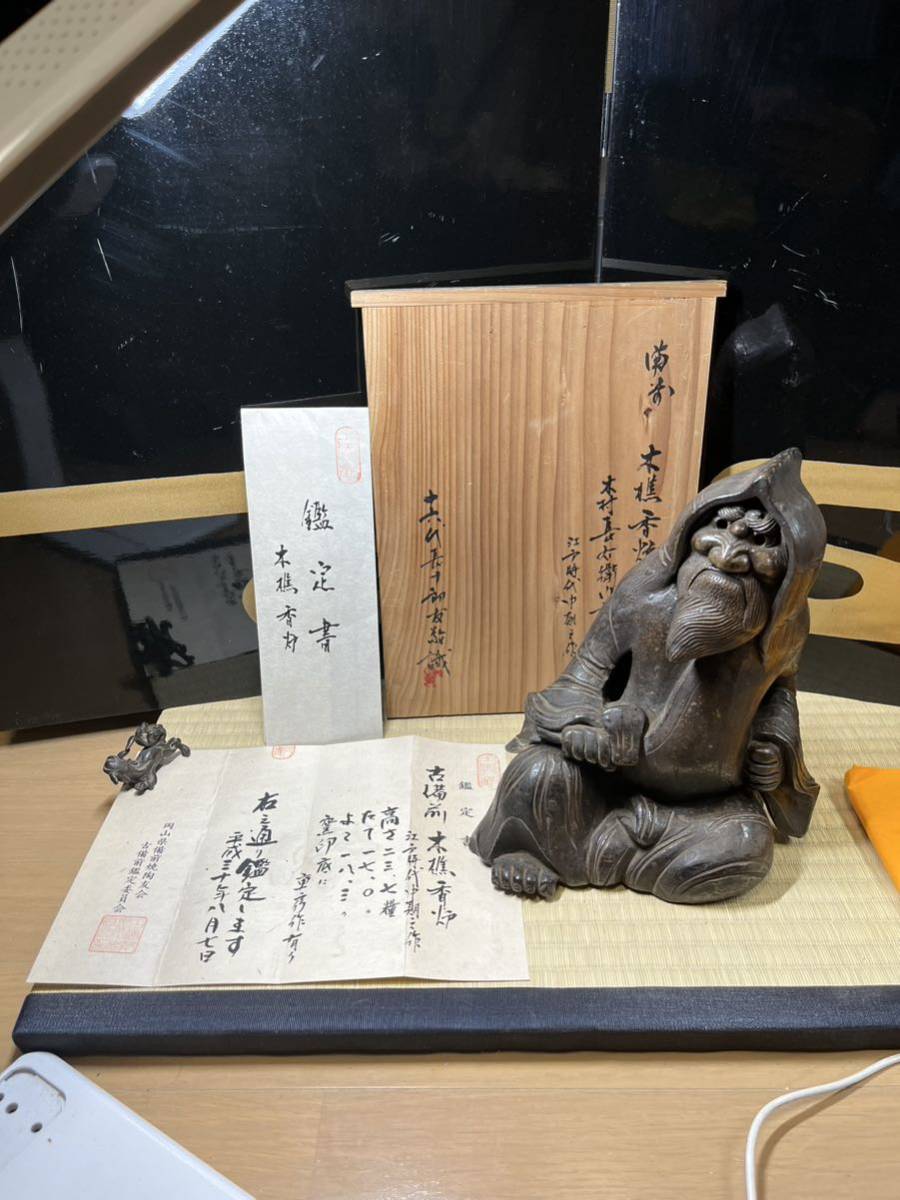 備前
木樵香炉
木村喜右衛門
江戸時代中期之作
鑑定書
木樵香炉
鑑定
古備前 木樵香炉
江戸時代中期之作
高さ二三、七糎
たて一七、〇〃
よこ一八、三〃
窯印底に
重秀作有り
右之通り鑑定します
平成三十年八月七日
岡山県備前焼陶友会
古備前鑑定委員会